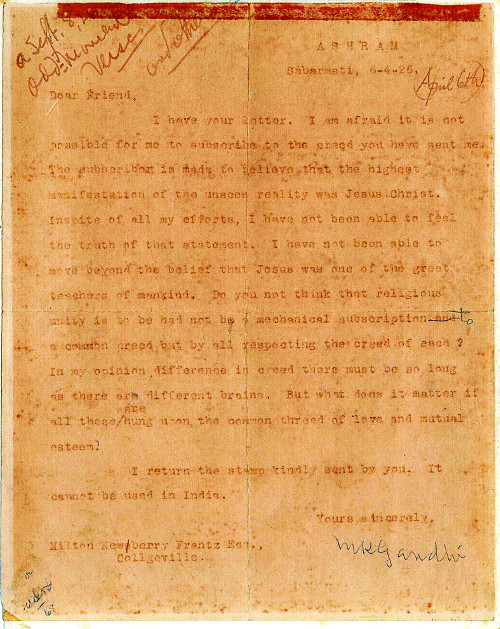 a Sept. 8,
add
Verse
on
ASHRAM
Sabarmati, 6-4-26.
(April 6th)
Dear Friend,
I have your letter. I am afraid it is not
possible for me to subscribe to the creed you have sent me.
The subscriber is made to believe that the highest
manifestation of the unseen reality was Jesus Christ.
Inspite of all my efforts, I have not been able to feel
the truth of that statement. I have not been able to
move beyond the belief that Jesus was one of the great
teachers of mankind. Do you not think that religious
unity is to be had not be a mechanical subscription and to
a common creed but by all respecting the creed of each ?
In my opinion difference in creed there must be so long
as there are different brains. But what does it matter if
are
all these/hung upon the common thread of love and mutual
esteem?
I return the stamp kindly sent by you. It
cannot be used in India.
Yours sincerely,
MKGandhi
Milton Newberry Frantz Esq.,
Collgeville.